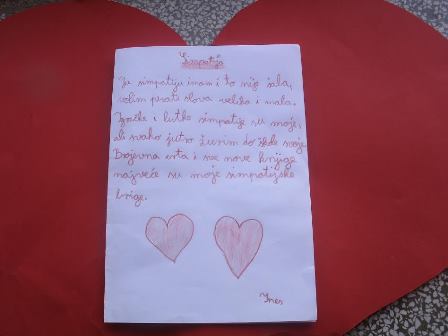 Simpatija
Ja simpatiju imam i to nije šala,
volim pisati slova velika i mala.
Igračke i lutke simpatije su moje,
ali svako jutro žurim do škole svoje.
Brojevna crta i sve nove knjige
najveće su moje simpatijske
brige.
Ines